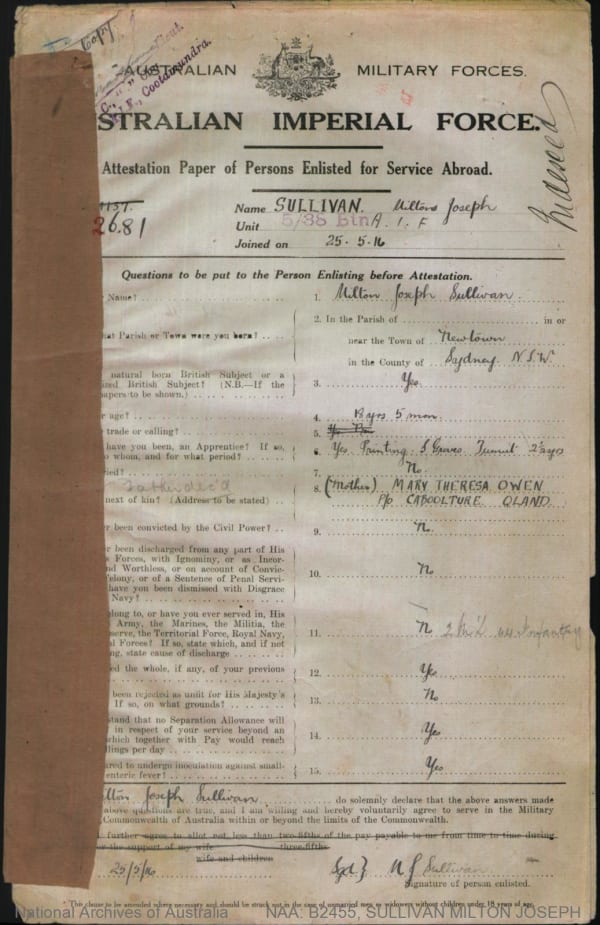 Copy
Cootamundra.
AUSTRALIAN MILITARY FORCES.
STRALIAN IMPERIAL FORCE.
Indexed
Attestation Paper of Persons Enlisted for Service Abroad.
2681
Name SULLIVAN. Milton Joseph
Unit 5/38 Btn A. I. F
Joined on 25. 5. 16
Questions to be put to the Person Enlisting before Attestation.
Name?
1. Milton Joseph Sullivan
2. In the Parish of in or
at Parish or Town were you born?
near the Town of Newtown
in the County of Sydney N.S.W.
natural born British Subject or a
British Subject? (N.B.—If the
papers to be shown.)
3. Yes
age?
4. 18 yrs 5 mon.
trade or calling?
5.
have you been, an Apprentice? If so,
whom, and for what period?
6. Yes Printing. Tumut
7. No
8. (Mother) MARY THERESA OWEN
Father dec'd
next of kin? (Address to be stated)
P/O CABOOLTURE QLAND
been convicted by the Civil Power?
9. N
been discharged from any part of His
Forces, with Ignominy, or as Incor-
and Worthless, or on account of Convic-
Felony, or of a Sentence of Penal Servi-
have you been dismissed with Disgrace
Navy?
10. N
long to, or have you ever served in, His
Army, the Marines, the Militia, the
serve, the Territorial Force, Royal Navy,
Forces? If so, state which, and if not
ng, state cause of discharge
11. N Infantry
ed the whole, if any, of your previous
12. Yes
been rejected as unfit for His Majesty's
If so, on what grounds?
13. No
stand that no Separation Allowance will
in respect of your service beyond an
which together with Pay would reach
llings per day
14. Yes
ared to undergo inoculation against small-
enteric fever?
15. Yes
ilton Joseph Sullivan do solemnly declare that the above answers made
above questions are true, and I am willing and hereby voluntarily agree to serve in the Military
Commonwealth of Australia within or beyond the limits of the Commonwealth.
further agree to allot not less than two-fifths of the pay payable to me from time to time during
for the support of my wife three-fifths
wife and children
25/5/16
Sgd} M J Sullivan
Signature of person enlisted.
* This clause to be amended where necessary and should be struck out in the case of unmarried men or widowers without children under 18 years of age.
National Archives of Australia NAA: B2455, SULLIVAN MILTON JOSEPH